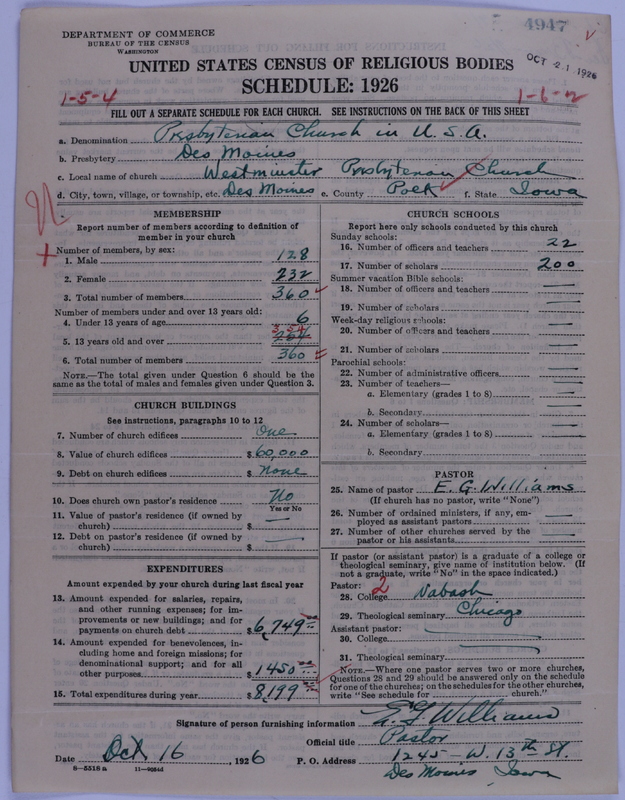 4947
DEPARTMENT OF COMMERCE
BUREAU OF THE CENSUS
WASHINGTON
OCT 21 1926
UNITED STATES CENSUS OF RELIGIOUS BODIES
SCHEDULE: 1926
1-5-4
1-6-2
FILL OUT A SEPARATE SCHEDULE FOR EACH CHURCH. SEE INSTRUCTIONS ON THE BACK OF THIS SHEET
a. Denomination Presbyterian Church in U.S.A.
b. Presbytery Des Moines
c. Local name of church Westminster Presbyterian Church
d. City, town, village, or township, etc. Des Moines e. County Polk f. State Iowa
MEMBERSHIP
Report number of members according to definition of
member in your church
Number of members, by sex:
1. Male 128
2. Female 232
3. Total number of members 360
Number of members under and over 13 years old:
4. Under 13 years of age 6
5. 13 years old and over 354
6. Total number of members 360
NOTE.—The total given under Question 6 should be the
same as the total of males and females given under Question 3.
CHURCH BUILDINGS
See instructions, paragraphs 10 to 12
7. Number of church edifices One
8. Value of church edifices $ 60,000
9. Debt on church edifices $ None
10. Does church own pastor's residence No
Yes or No
11. Value of pastor's residence (if owned by
church) $ —
12. Debt on pastor's residence (if owned by
church) $ —
EXPENDITURES
Amount expended by your church during last fiscal year
13. Amount expended for salaries, repairs,
and other running expenses; for im-
provements or new buildings; and for
payments on church debt $ 6,749 00
14. Amount expended for benevolences, in-
cluding home and foreign missions; for
denominational support; and for all
other purposes $ 1450 00
15. Total expenditures during year $ 8,199
CHURCH SCHOOLS
Report here only schools conducted by this church
Sunday schools:
16. Number of officers and teachers 22
17. Number of scholars 200
Summer vacation Bible schools:
18. Number of officers and teachers —
19. Number of scholars —
Week-day religious schools:
20. Number of officers and teachers —
21. Number of scholars —
Parochial schools:
22. Number of administrative officers —
23. Number of teachers—
a. Elementary (grades 1 to 8) —
b. Secondary —
24. Number of scholars—
a. Elementary (grades 1 to 8) —
b. Secondary —
PASTOR
25. Name of pastor E. G. Williams
(If church has no pastor, write "None")
26. Number of ordained ministers, if any, em-
ployed as assistant pastors —
27. Number of other churches served by the
pastor or his assistants —
If pastor (or assistant pastor) is a graduate of a college or
theological seminary, give name of institution below. (If
not a graduate, write "No" in the space indicated.)
Pastor: 2
28. College Wabash
29. Theological seminary Chicago
Assistant pastor:
30. College —
31. Theological seminary —
NOTE.—Where one pastor serves two or more churches,
Questions 28 and 29 should be answered only on the schedule
for one of the churches; on the schedules for the other churches,
write "See schedule for church."
Signature of person furnishing information E. G. Williams
Official title Pastor
Date Oct 16, 1926 P. O. Address 1245 — W. 13th St.
8—5518 a 11—9054d Des Moines Iowa